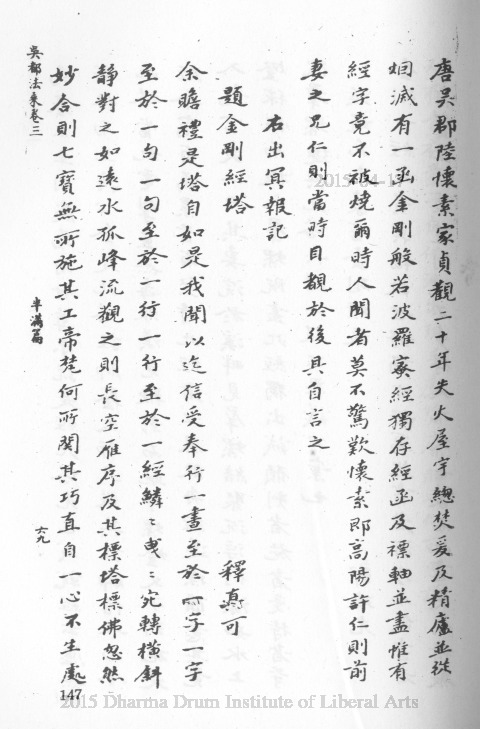 唐吳郡陸懷素家貞觀二十年失火屋宇總焚爰及精廬並從
烟滅有一函金剛般若波羅蜜經獨存經函及褾軸並盡惟有
經字竟不被燒爾時人聞者莫不驚歎懷素即高陽許仁則前
妻之兄仁則當時目覩於後具自言之
右出冥報記
題金剛經塔
釋真可
余瞻禮是塔自如是我聞以迄信受奉行一畫至於一字一字
至於一句一句至於一行一行至於一經鱗〻曵〻宛轉橫斜
靜對之如遠水孤峰流觀之則長空雁序及其標塔標佛忽然
妙合則七寶無所施其工帝梵何所關其巧直自一心不生處
吳都法乘卷三
半滿篇
六九
147
2015-04-17
2015 Dharma Drum Institute of Liberal Arts